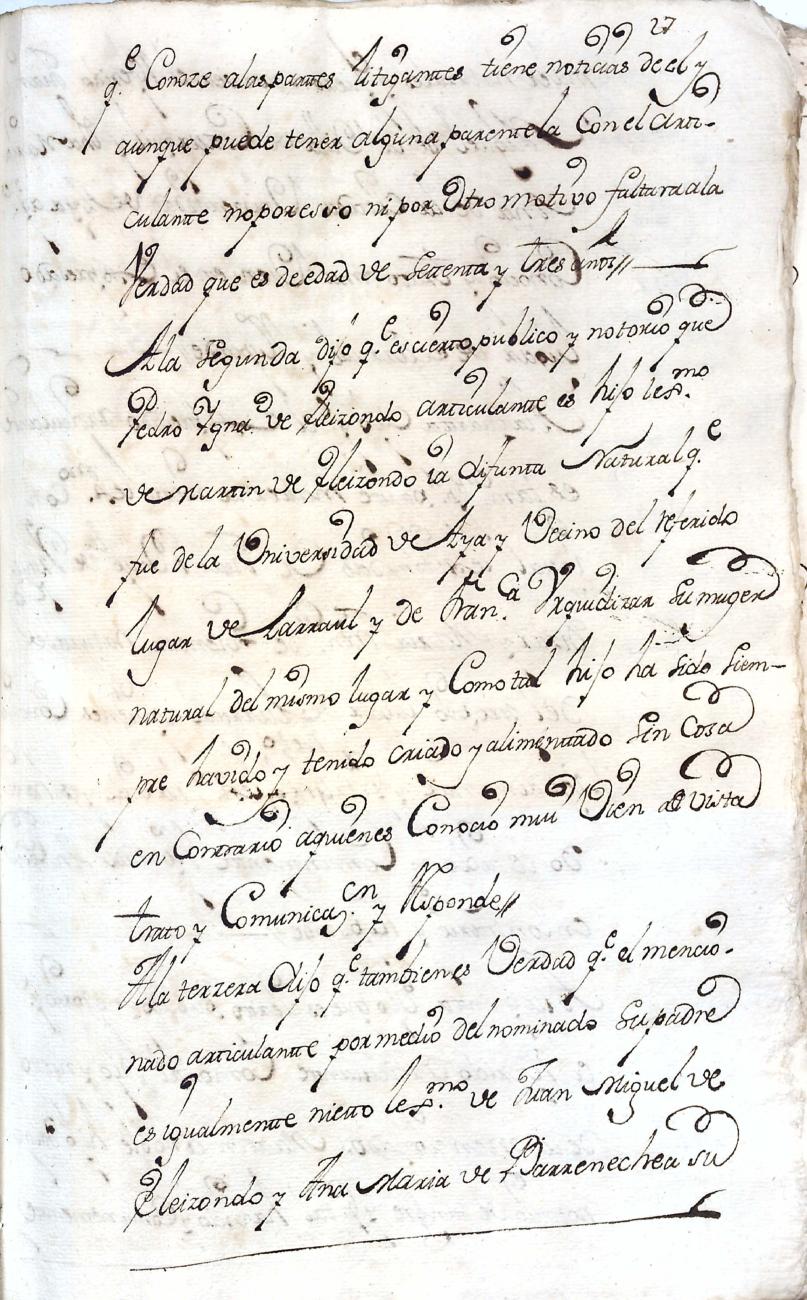 27
q.e Conoze alas partes litigantes tiene noticias de el y
aunque puede tener alguna parentela Con el arti-
culante no por esso ni por Otro motivo faltara ala
Verdad que es de edad de Settenta y tres años//
Ala Segunda dijo q.e es cierto publico y notorio que
Pedro Ygna.o de Eleizondo articulante es hijo lex.mo
de Martin de Eleizondo ia difunta Natural q.e
fue de la Universidad de Aya y Vecino del referido
lugar de Larraul y de Fran.ca Vrquidizar Su muger
natural del mismo lugar y Como tal hijo ha sido Siem-
pre havido y tenido criado y alimentado Sin Cosa
en Contrario aquienes Conocio mui Vien de vista
trato y Comunicaz.cn y Responde//
Ala terzera dijo q.e tambien es Verdad q.e el mencio-
nado articulante por medio del nominado Su padre
es igualmente nietto lex.mo de Juan Miguel de
Eleizondo y Ana Maria de Barrenechea su